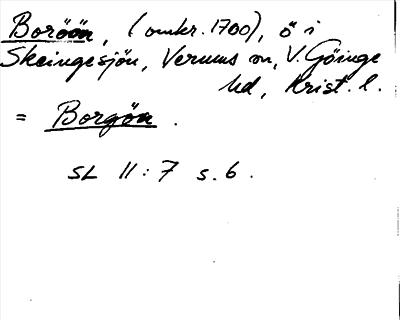 Boröön, (omkr. 1700), ö i
Skeingesjön, Verums sn, V. Göinge
hd, Krist. l.
= Borgön.
SL II:7 s. 6.